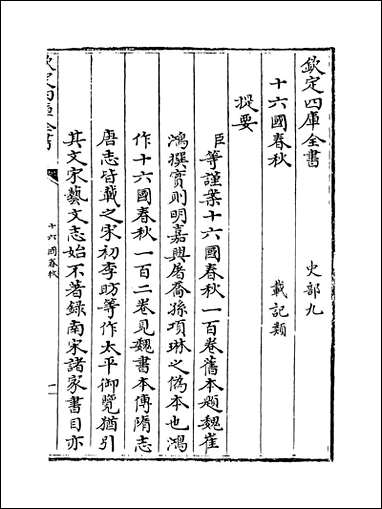 欽定四庫全書
史部九
十六國春秋
載記類
提要
臣等謹案十六國春秋一百卷舊本題魏崔
鴻撰實則明嘉興屠喬孫項琳之偽本也鴻
作十六國春秋一百二卷見魏書本傳隋志
唐志皆載之宋初李昉等作太平御覽猶引
其文宋藝文志始不著録南宋諸家書目亦
欽定四庫全書
十六國春秋
一